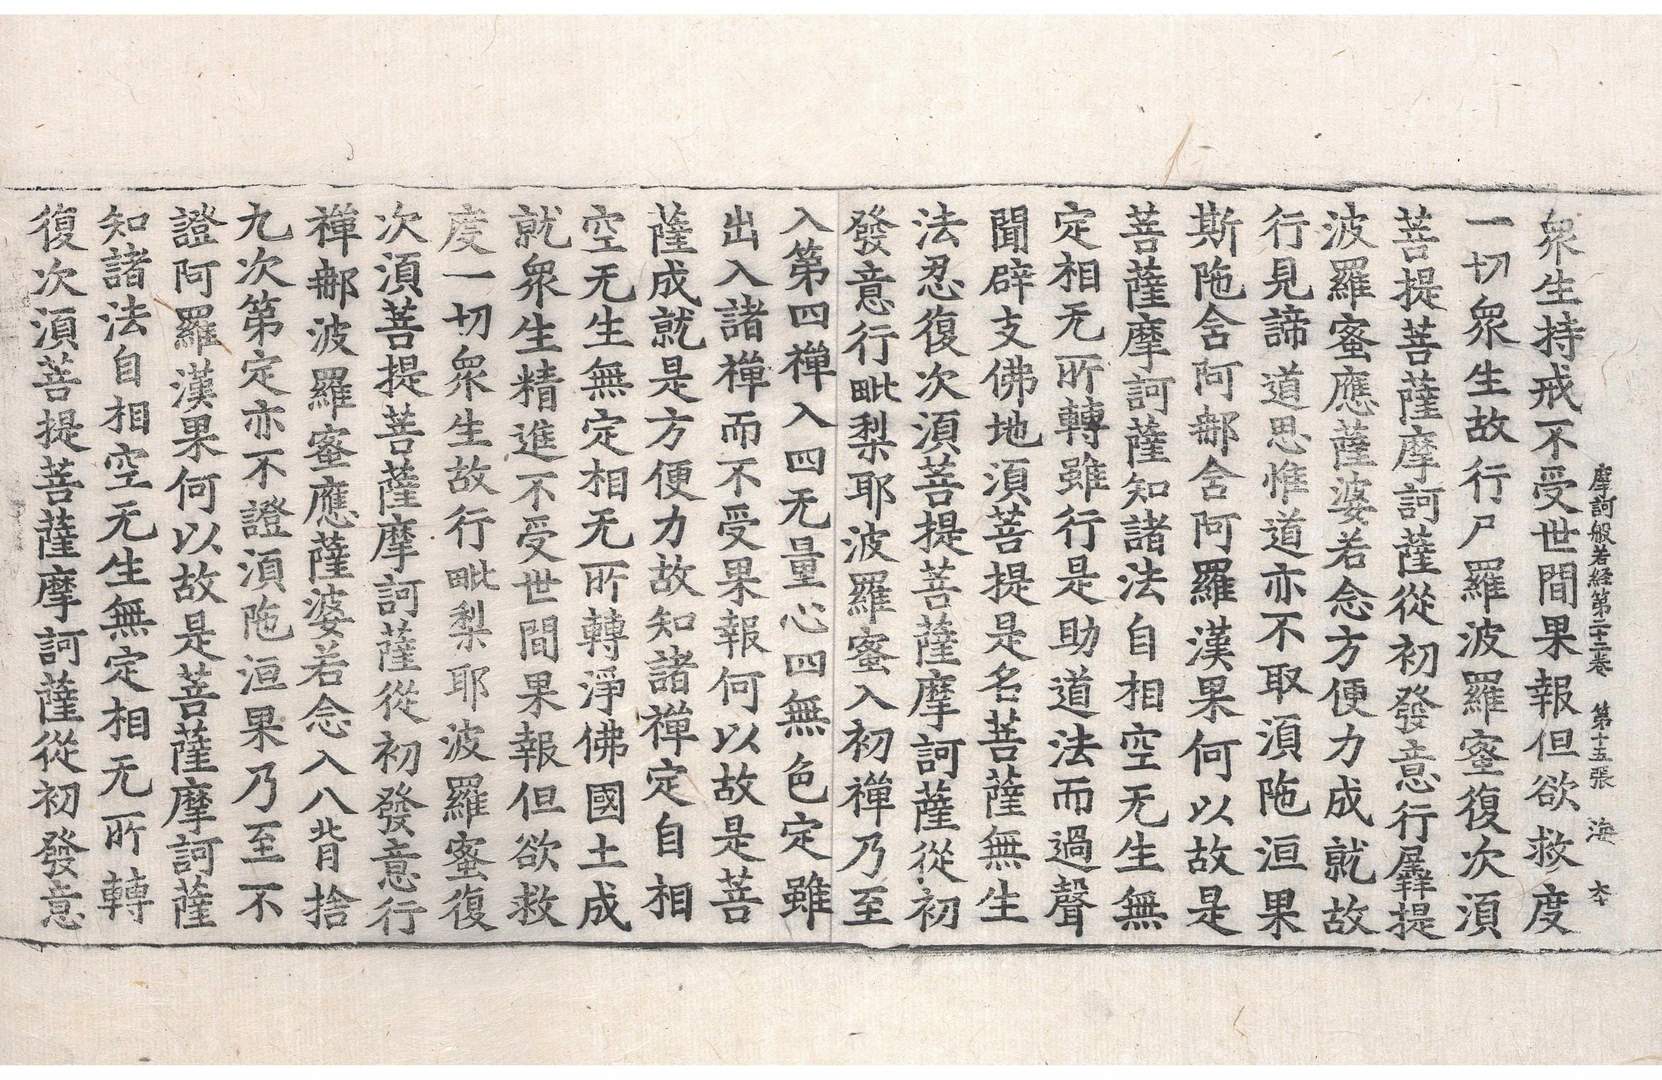 摩訶般若経第二十二卷 第十五張 海
眾生持戒不受世間果報但欲救度
一切眾生故行尸羅波羅蜜復次須
菩提菩薩摩訶薩從初發意行羼提
波羅蜜應薩婆若念方便力成就故
行見諦道思惟道亦不取須陁洹果
斯陁含阿那含阿羅漢果何以故是
菩薩摩訶薩知諸法自相空无生無
定相无所轉雖行是助道法而過聲
聞辟支佛地須菩提是名菩薩無生
法忍復次須菩提菩薩摩訶薩從初
發意行毗梨耶波羅蜜入初禪乃至
入第四禪入四无量心四無色定雖
出入諸禪而不受果報何以故是菩
薩成就是方便力故知諸禪定自相
空无生無定相无所轉淨佛國土成
就眾生精進不受世間果報但欲救
度一切眾生故行毗梨耶波羅蜜復
次須菩提菩薩摩訶薩從初發意行
禪那波羅蜜應薩婆若念入八背捨
九次第定亦不證須陁洹果乃至不
證阿羅漢果何以故是菩薩摩訶薩
知諸法自相空无生無定相无所轉
復次須菩提菩薩摩訶薩從初發意